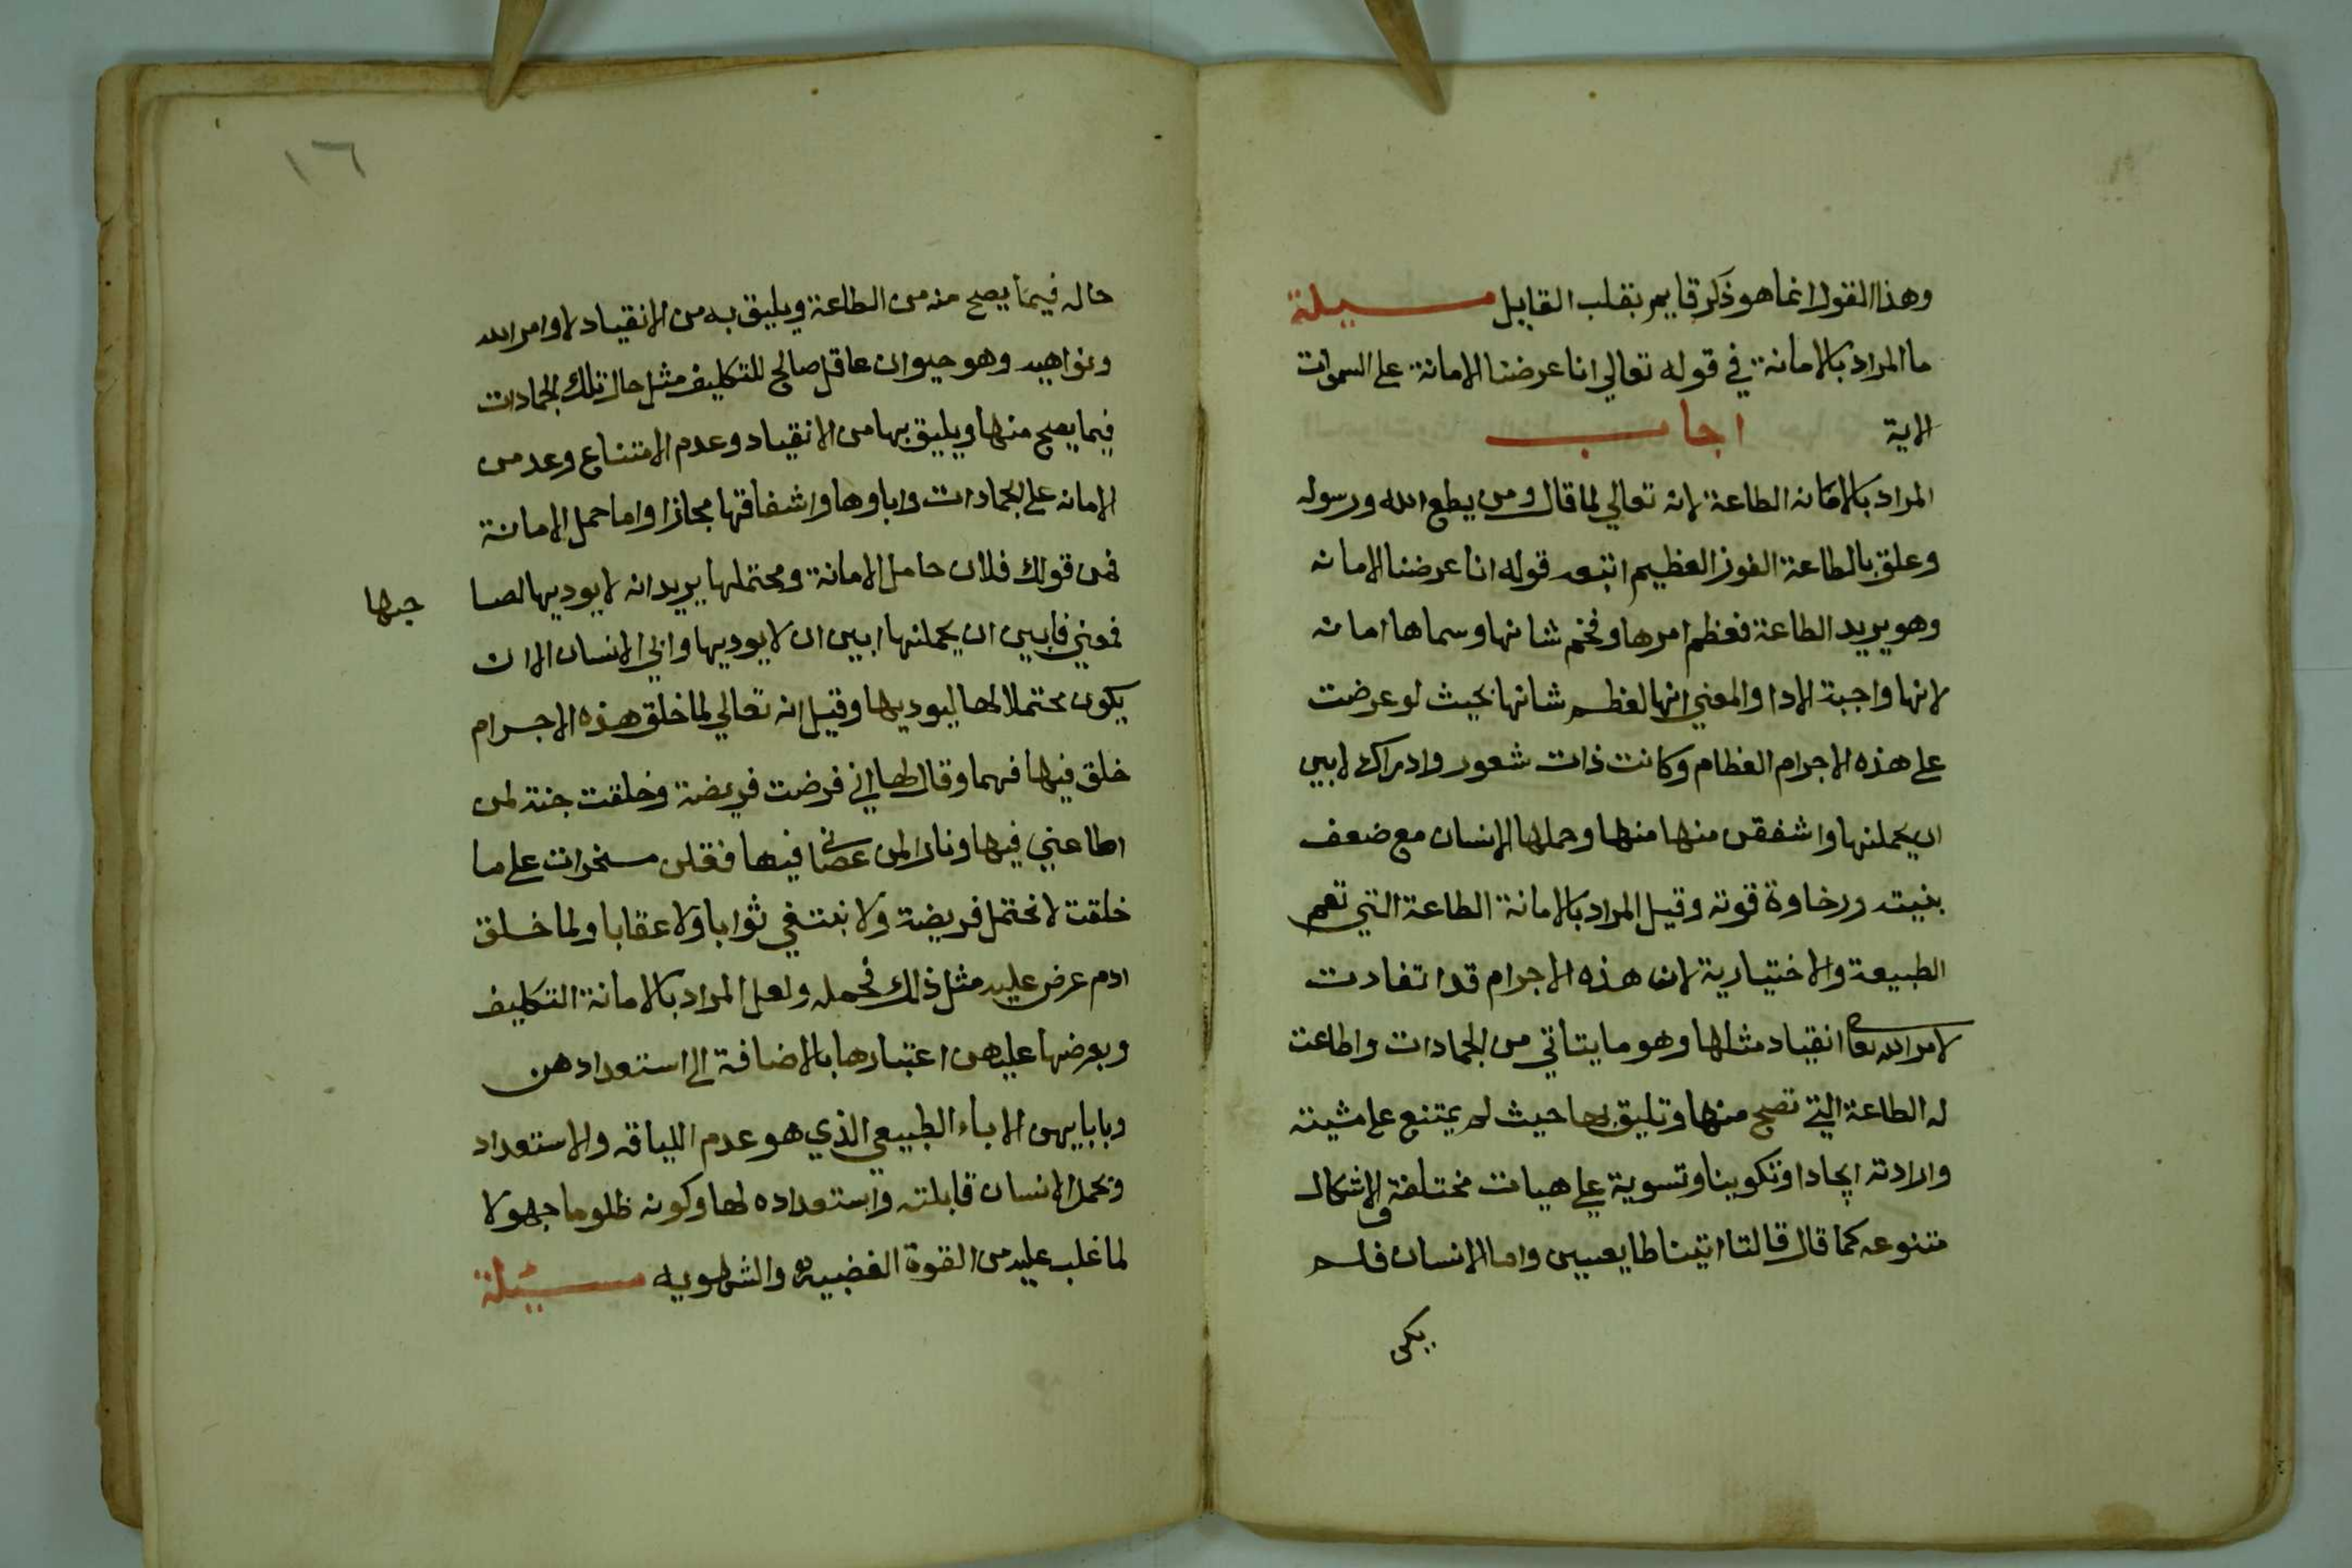 وهذا القول انما هو ذكر قايم بقلب القايل مسيلة
ما المراد بالامانة في قوله تعالي انا عرضنا الامانة علي السموات
الاية اجاب
المراد بالامانه الطاعة لانه تعالي لما قال ومن يطع الله ورسوله
وعلق بالطاعة الفوز العظيم اتبعه قوله انا عرضنا الامانه
وهو يريد الطاعة فعظم امرها وفخم شانها وسماها امانه
لانها واجبة الادا والمعني انها لعظم شانها بحيث لو عرضت
علي هذه الاجرام العظام وكانت ذات شعور وادراك لابين
ان يحملنها واشفقن منها منها وحملها الانسان مع ضعف
بنيته ورخاوة قوته وقيل المراد بالامانة الطاعة التي تعم
الطبيعة والاختيارية لان هذه الاجرام قد انقادت
لامر الله تعا انقياد مثلها وهو ما يتاتي من الجمادات واطاعت
له الطاعة التي تصح منها وتليق بها حيث لم يمتنع علي مشيته
وارادته ايجادا وتكوينا وتسوية علي هيات مختلفة والاشكال
متنوعه كما قال قالتا اتينا طايعيين واما الانسان فلم
يكن
١٦
حاله فيما يصح منه من الطاعة ويليق به من الانقياد لاوامر الله
ونواهيه وهو حيوان عاقل صالح للتكليف مثل حال تلك الجمادات
فيما يصح منها ويليق بها من الانقياد وعدم الامتناع وعد من
الامانه علي الجمادات واباوها واشفاقها مجازا واما حمل الامانة
فمن قولك فلان حامل الامانة ومحتملها يريد انه لا يوديها لصا حبها
فمعني فابين ان يحملنها ابين ان لا يوديها وابي الانسان الا ان
يكون محتملا لها ليوديها وقيل انه تعالي لما خلق هذه الاجرام
خلق فيها فهما وقال لها اني فرضت فريضة وخلقت جنة لمن
اطاعني فيها ونارا لمن عصاني فيها فقلن مسخرات علي ما
خلقت لا نحتمل فريضة ولا نبتغي ثوابا ولا عقابا ولما خلق
ادم عرض عليه مثل ذلك فحمله ولعل المراد بالامانة التكليف
وبعرضها عليهن اعتبارها بالاضافة الي استعدادهن
وبابايهن الاباء الطبيعي الذي هو عدم اللياقه والاستعداد
وبحمل الانسان قابلته واستعداده لها وكونه ظلوما جهولا
لما غلب عليه من القوة الغضبيه والشهويه مسيئلة